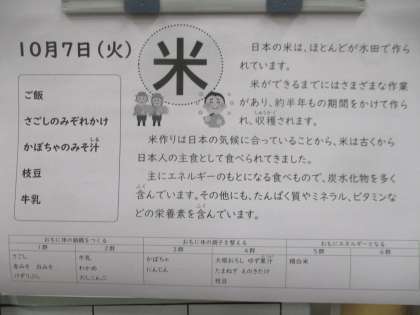 10月7日(火)
米
ご飯
さごしのみぞれかけ
かぼちゃのみそ汁
枝豆
牛乳
日本の米は、ほとんどが水田で作ら
れています。
米ができるまでにはさまざまな作業
があり、約半年もの期間をかけて作ら
れ、収穫されます。
米作りは日本の気候に合っていることから、米は古くから
日本人の主食として食べられてきました。
主にエネルギーのもとになる食べもので、炭水化物を多く
含んでいます。その他にも、たんぱく質やミネラル、ビタミンな
どの栄養素を含んでいます。
おもに体の組織をつくる おもに体の調子を整える おもにエネルギーとなる
1群 2群 3群 4群 5群 6群
さごし 牛乳 かぼちゃ 大根おろし ゆず果汁 精白米
赤みそ 白みそ わかめ にんじん たまねぎ えのきたけ
けずりぶし だしこんぶ 枝豆